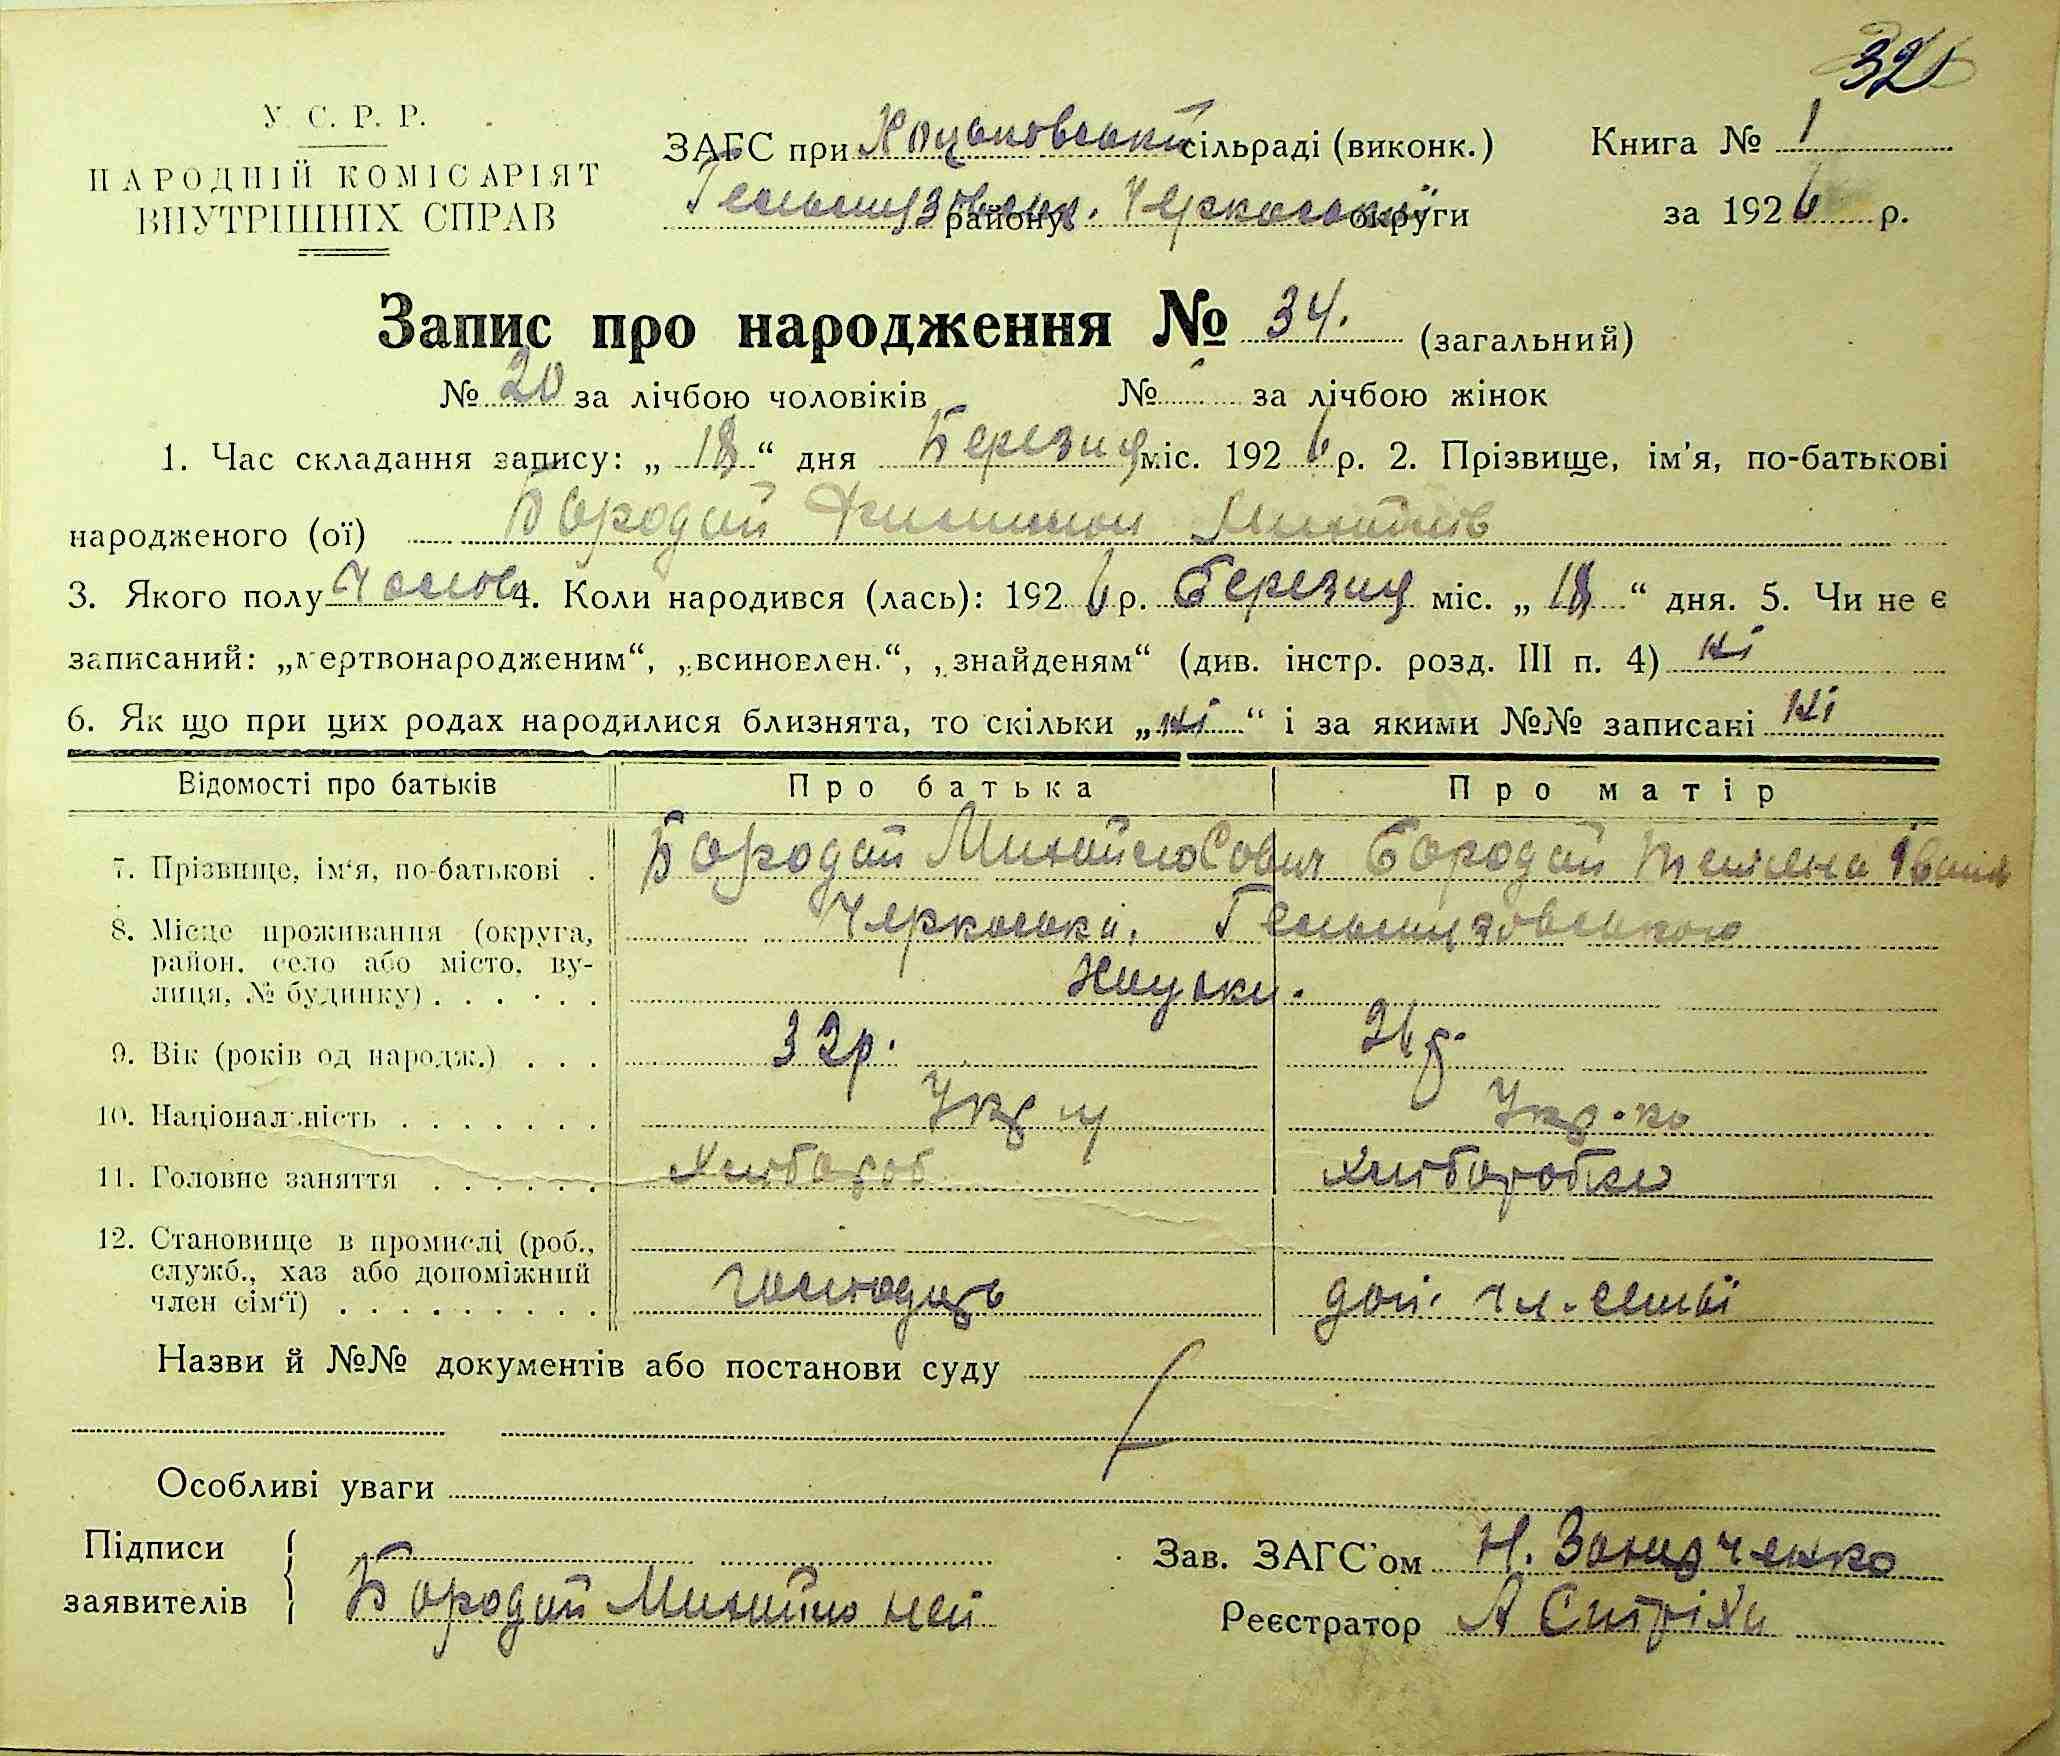 32
У. С. Р. Р.
НАРОДНІЙ КОМІСАРІЯТ
ВНУТРІШНІХ СПРАВ
ЗАГС при Хоцьковській сільраді (виконк.)
Гельмязовськ. району Черкаської округи
Книга № 1
за 1926 р.
Запис про народження № 34. (загальний)
№ 20 за лічбою чоловіків № за лічбою жінок
1. Час складання запису: „ 18 “ дня Березня міс. 1926 р. 2. Прізвище, ім'я, по-батькові
народженого (ої) Бородай Михайлів
3. Якого полу Чолов 4. Коли народився (лась): 1926 р. Березня міс. „ 18 “ дня. 5. Чи не є
записаний: „мертвонародженим“, „всиновлен.“, „знайденям“ (див. інстр. розд. III п. 4) ні
6. Як що при цих родах народилися близнята, то скільки „ ні “ і за якими №№ записані ні
Відомості про батьків Про батька Про матір
7. Прізвище, ім'я, по-батькові . Бородай Михайло Бородай Тетяна Іванів
8. Місце проживання (округа, Черкаська. Гельмязовського
район, село або місто, ву-
лиця, № будинку) . . . . . . Хоцьки.
9. Вік (років од народж.) . . . 32 р. 26 р.
10. Національність . . . . . . . Укр-ц Укр-ка
11. Головне заняття . . . . . . Хлібороб Хліборобка
12. Становище в промислі (роб.,
служб., хаз або допоміжний
член сім'ї) . . . . . . . . . господарь доп. чл. семьї
Назви й №№ документів або постанови суду
Особливі уваги
Підписи
заявителів Бородай Михайло
Зав. ЗАГС'ом Н.
Реєстратор А